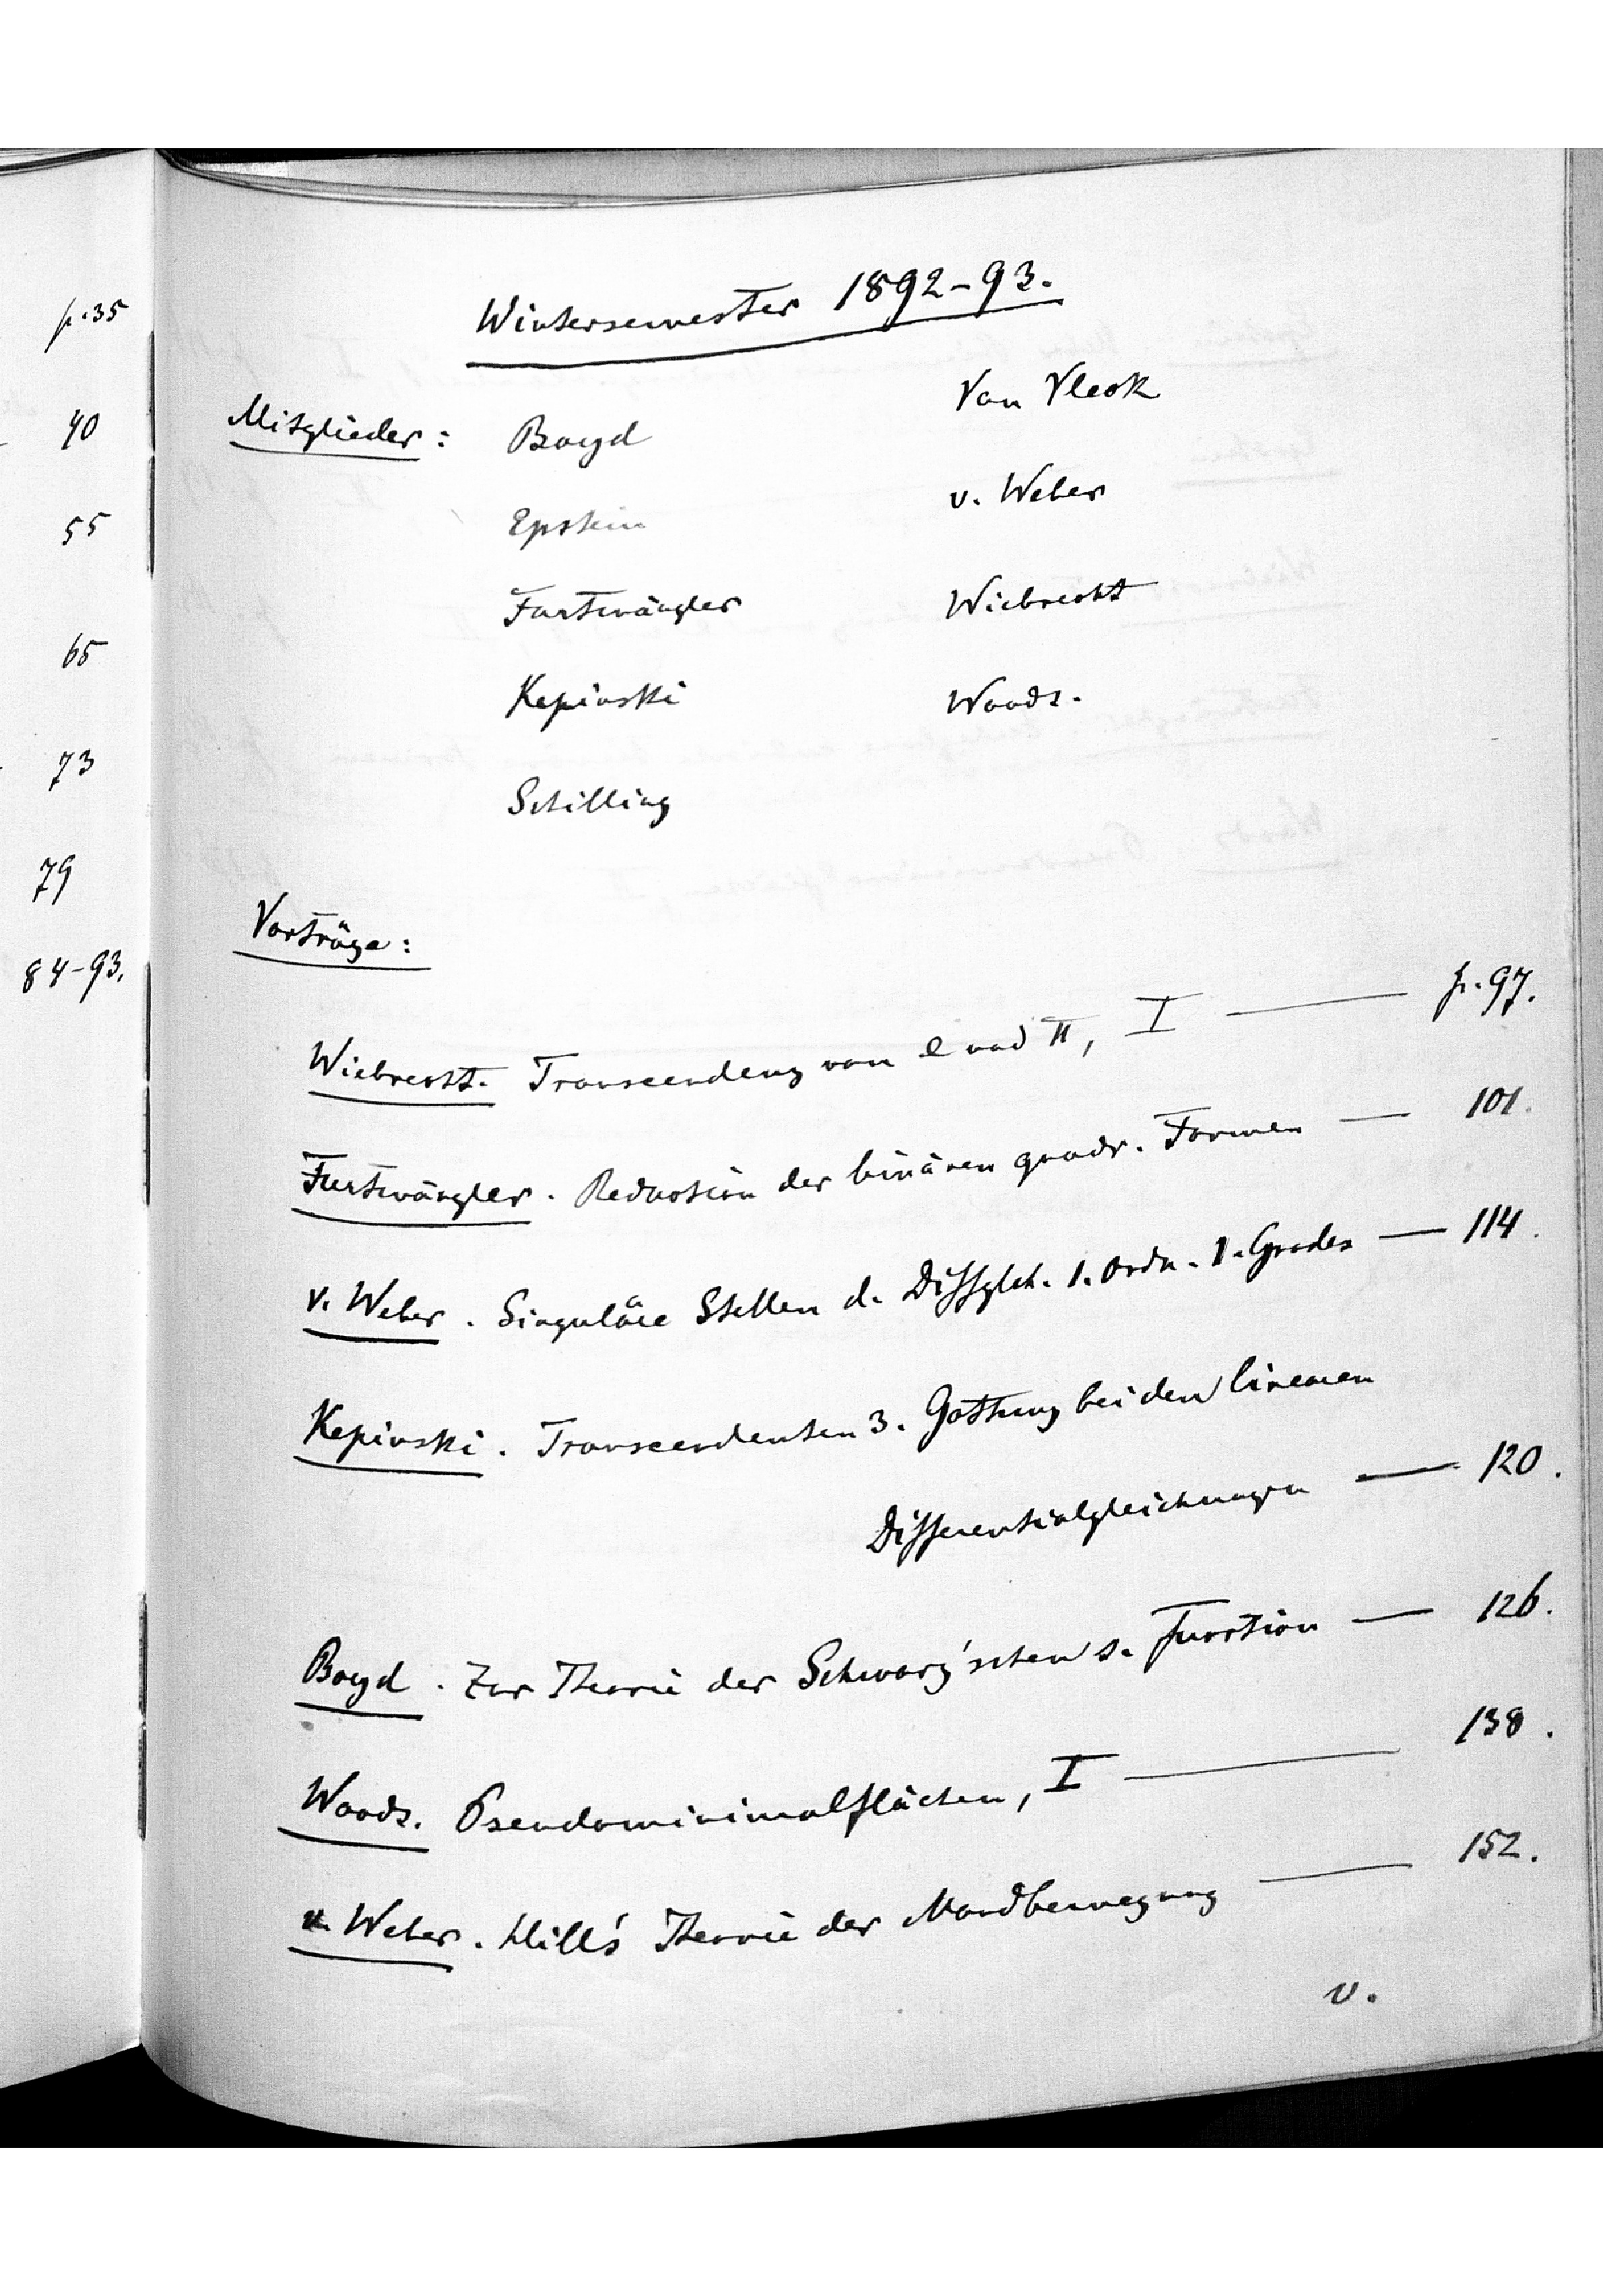 p. 35
40
55
65
73
79
84-93.
Wintersemester 1892-93.
Mitglieder: Boyd Van Vleck
Epstein v. Weber
Furtwängler Wiebrecht
Kepinski Woods.
Schilling
Vorträge:
Wiebrecht. Transcendenz von e und π, I — p. 97.
Furtwängler. Reduction der binären quadr. Formen — 101.
v. Weber. Singuläre Stellen d. Diffglch. 1. Ordn. 1. Grades — 114.
Kepinski. Transcendenten 3. Gattung bei den linearen
Differentialgleichungen — 120.
Boyd. Zur Theorie der Schwarz'schen s. Function — 126.
Woods. Pseudominimalflächen, I — 138.
v. Weber. Hill's Theorie der Mondbewegung — 152.
v.